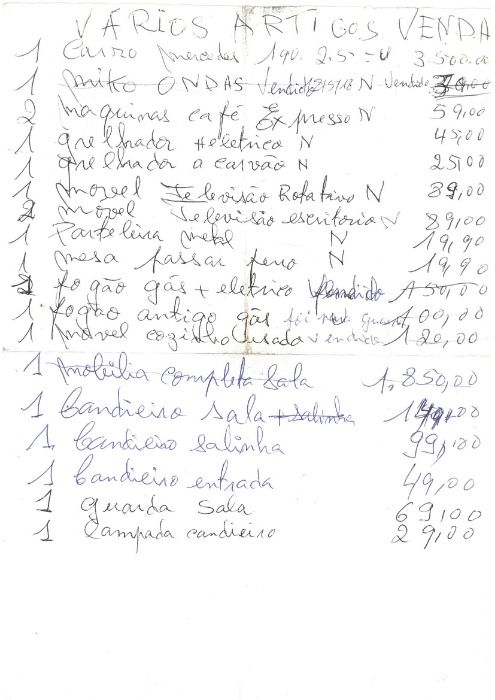 VÁRIOS ARTIGOS VENDA
1 Carro mercedes 190. 2.5 = U 3.500.00
1 miko ONDAS Vendido N Vendido 39,00
2 maquinas café Expresso N 59,00
1 grelhador eletrico N 45,00
1 grelhador a carvão N 25,00
1 movel Televisão Rotativo N 89,00
2 movel Televisão escritorio N 89,00
1 Parteleira metal N 19,90
1 mesa passar feno N 19,90
2 fogão gás + eletrico Vendido 150,00
1 fogão antigo gás foi 100,00
1 movel cozinha usado vendido 120,00
1 mobilia completa Sala 1.850,00
1 Candieiro sala + salinha 149,00
1 Candieiro salinha 99,00
1 Candieiro entrada 49,00
1 guarda Sala 69,00
1 lampada candieiro 29,00